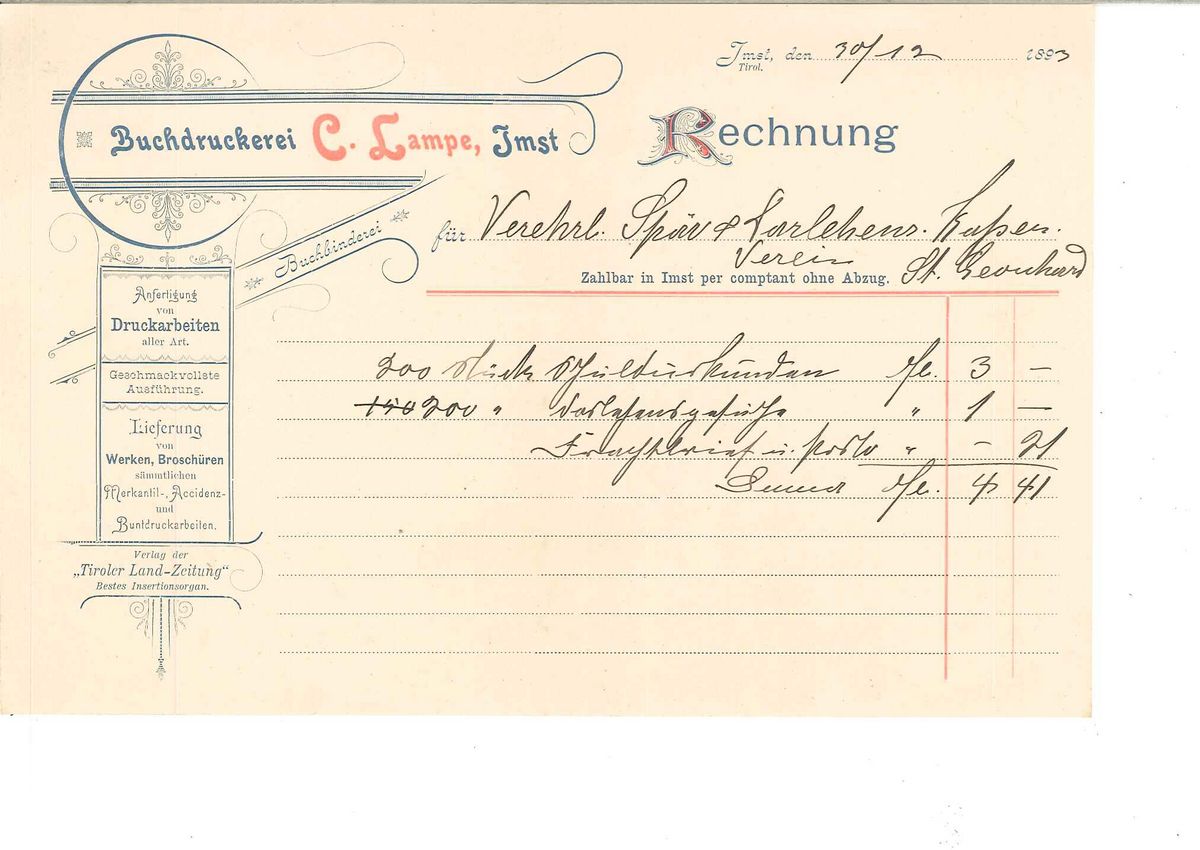 Imst, den 30/12 1893
Tirol.
Buchdruckerei C. Lampe, Imst
Rechnung
für Verehrl. Spar & Darlehens. Kassen.
Verein
Zahlbar in Imst per comptant ohne Abzug. St. Leonhard
Buchbinderei
Anfertigung
von
Druckarbeiten
aller Art.
Geschmackvollste
Ausführung.
Lieferung
von
Werken, Broschüren
sämmtlichen
Merkantil-, Accidenz-
und
Buntdruckarbeiten.
Verlag der
„Tiroler Land-Zeitung“
Bestes Insertionsorgan.
200 Stück Schuldurkunden fl. 3 —
150 200 " Darlehensgesuche " 1 —
Frachtbrief u. Porto " - 21
Summa fl. 4 41